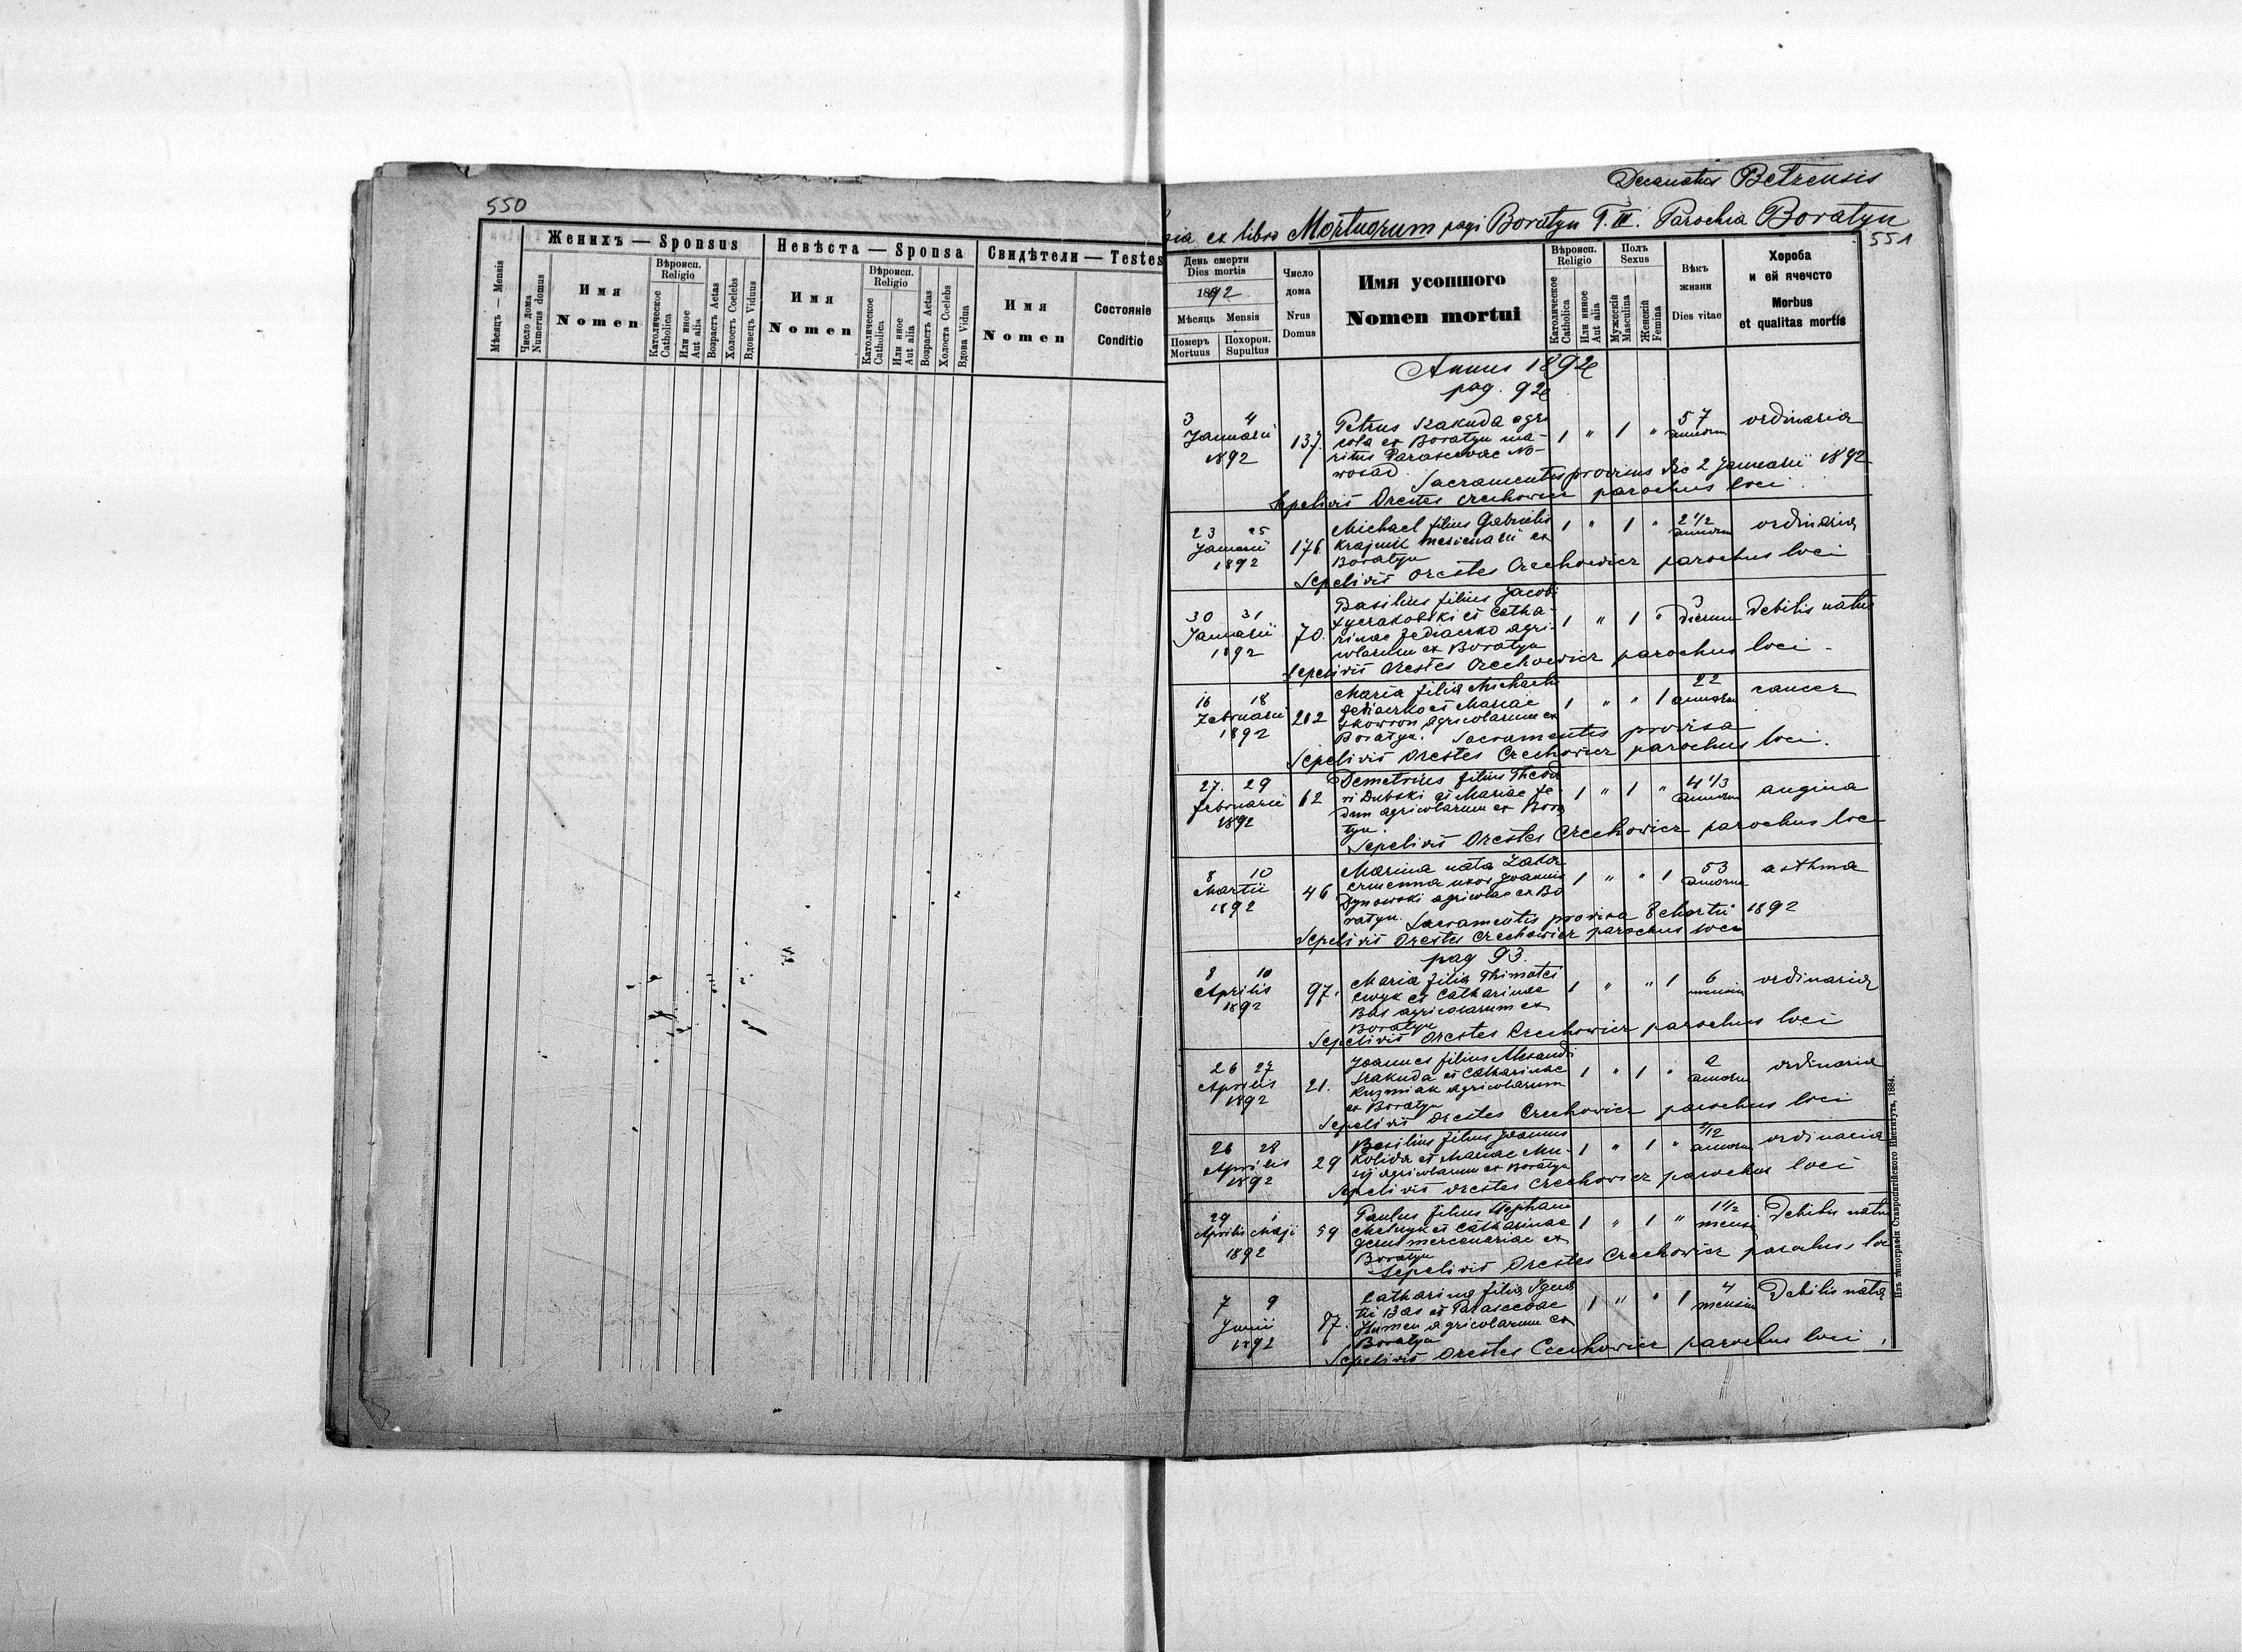 550
Женихъ — Sponsus
Невѣста — Sponsa
Свидѣтели — Testes
Мѣсяцъ — Mensis
Число дома
Numerus domus
Имя
Nomen
Вѣроисп.
Religio
Католическое
Catholica
Или инное
Aut alia
Возрастъ Aetas
Холостъ Coelebs
Вдовецъ Viduus
Имя
Nomen
Вѣроисп.
Religio
Католическое
Catholica
Или инное
Aut alia
Возрастъ Aetas
Холоста Coelebs
Вдова Vidua
Имя
Nomen
Состояніе
Conditio
Decanatus Betzensis
ex libro Mortuorum pagi Boratyn T. III. Parochia Boratyn
551
День смерти
Dies mortis
1892.
Мѣсяць Mensis
Померъ
Mortuus
Похорон.
Supultus
Число
дома
Nrus
Domus
Имя усопшого
Nomen mortui
Вѣроисп.
Religio
Католическое
Catholica
Или инное
Aut alia
Полъ
Sexus
Мужескій
Masculina
Женскій
Femina
Вѣкъ
жизни
Dies vitae
Хороба
и ей ячечсто
Morbus
et qualitas mortis
Annus 1892
pag. 92
3 4
Januarii
1892
137.
Petrus agri
cola ex Boratyn ma-
ritus Parascevae No-
wosad. Sacramentis provisus die 2 Januarii 1892
1 " 1 "
57
annorum
ordinaria
Sepelivit Orestes Crechowicz parochus loci.
23 25
Januarii
1892
176.
Michael filius Gabrielis
Krajnik mercenarii ex
Boratyn
1 " 1 "
2 1/2
annorum
ordinaria
Sepelivit Orestes Crechowicz parochus loci
30 31
Januarii
1892
70.
Basilius filius Jacobi
et Catha-
rinae Fediaczko agri-
colarum ex Boratyn
1 " 1 "
3
dierum
debilis natus
Sepelivit Orestes Crechowicz parochus loci
16 18
Februarii
1892
212
Maria filia Michaelis
Fediaczko et Mariae
Skowron agricolarum ex
Boratyn. Sacramentis provisa
1 " " 1
22
annorum
cancer
Sepelivit Orestes Crechowicz parochus loci.
27. 29
Februarii
1892
62
Demetrius filius Theod
ri Dubski et Mariae Fe
dun agricolarum ex Bora
tyn.
1 " 1 "
4 1/3
annorum
angina
Sepelivit Orestes Crechowicz parochus loci
8 10
Martii
1892
46
Marina nata
uxor Joannis
Dynowski agricolae ex Bo
ratyn. Sacramentis provisa 8 Martii 1892
1 " " 1
53
annorum
asthma
Sepelivit Orestes Crechowicz parochus loci
pag 93.
8 10
Aprilis
1892
97.
Maria filia Thimotei
et Catharinae
Bas agricolarum ex
Boratyn
1 " " 1
6
mensium
ordinaria
Sepelivit Orestes Crechowicz parochus loci
26 27
Aprilis
1892
21.
Joannes filius Alexandri
et Catharinae
Kuzmiak agricolarum
ex Boratyn
1 " 1 "
2
annorum
ordinaria
Sepelivit Orestes Crechowicz parochus loci
26 28
Aprilis
1892
29
Basilius filius Joannis
Kolida et Mariae Mu-
agricolarum ex Boratyn
1 " 1 "
annorum
ordinaria
Sepelivit Orestes Crechowicz parochus loci
29 1
Aprilis Maji
1892
59
Paulus filius Stephani
et Catharinae
mercenariae ex
Boratyn
1 " 1 "
1 1/2
mensi
Debilis natus
Sepelivit Orestes Crechowicz parochus loci
7 9
Junii
1892
87.
Catharina filia Igna
tii Bas et Parascevae
Humen agricolarum ex
Boratyn
1 " " 1
4
mensium
Debilis nata
Sepelivit Orestes Crechowicz parochus loci.
Изъ типографіи Ставропигійского Института, 1884.